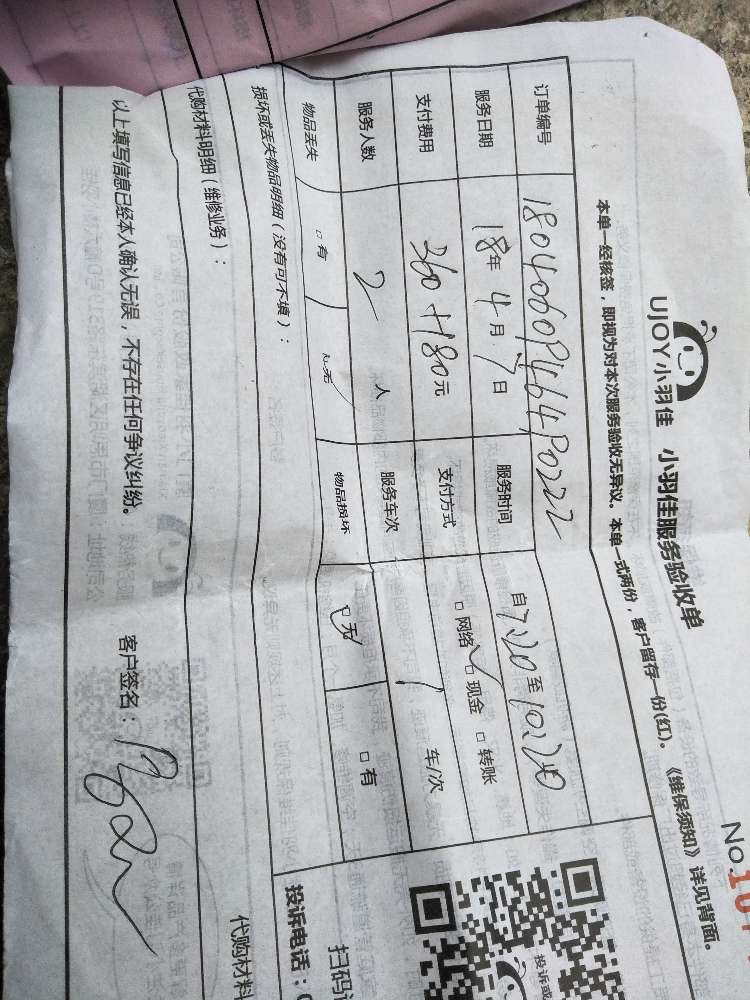 No.10
UJOY小羽佳 小羽佳服务验收单
本单一经核签，即视为对本次服务验收无异议。本单一式两份，客户留存一份(红)。《维保须知》详见背面。
订单编号
服务日期 18年4月7日 服务时间 自7:20至10:20
支付费用 360+180元 支付方式 □网络 □现金 □转账
服务人数 2人 服务车次 1车/次
物品丢失 □有 □无 物品损坏 □无 □有
损坏或丢失物品明细（没有可不填）：
代购材料明细（维修业务）： 代购材料
以上填写信息已经本人确认无误，不存在任何争议纠纷。 客户签名：
投诉或
扫码
投诉电话：0